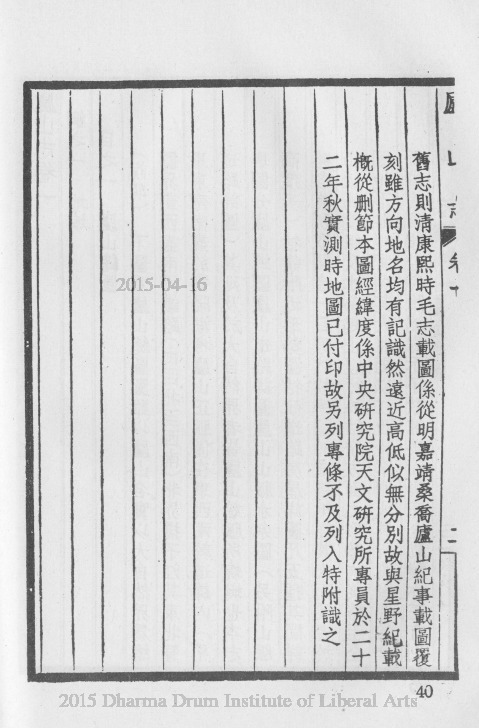 舊志則清康熙時毛志載圖係從明嘉靖桑喬廬山紀事載圖覆
刻雖方向地名均有記識然遠近高低似無分別故與星野紀載
概從刪節本圖經緯度係中央研究院天文研究所專員於二十
二年秋實測時地圖已付印故另列專條不及列入特附識之
2015-04-16
40
2015 Dharma Drum Institute of Liberal Arts